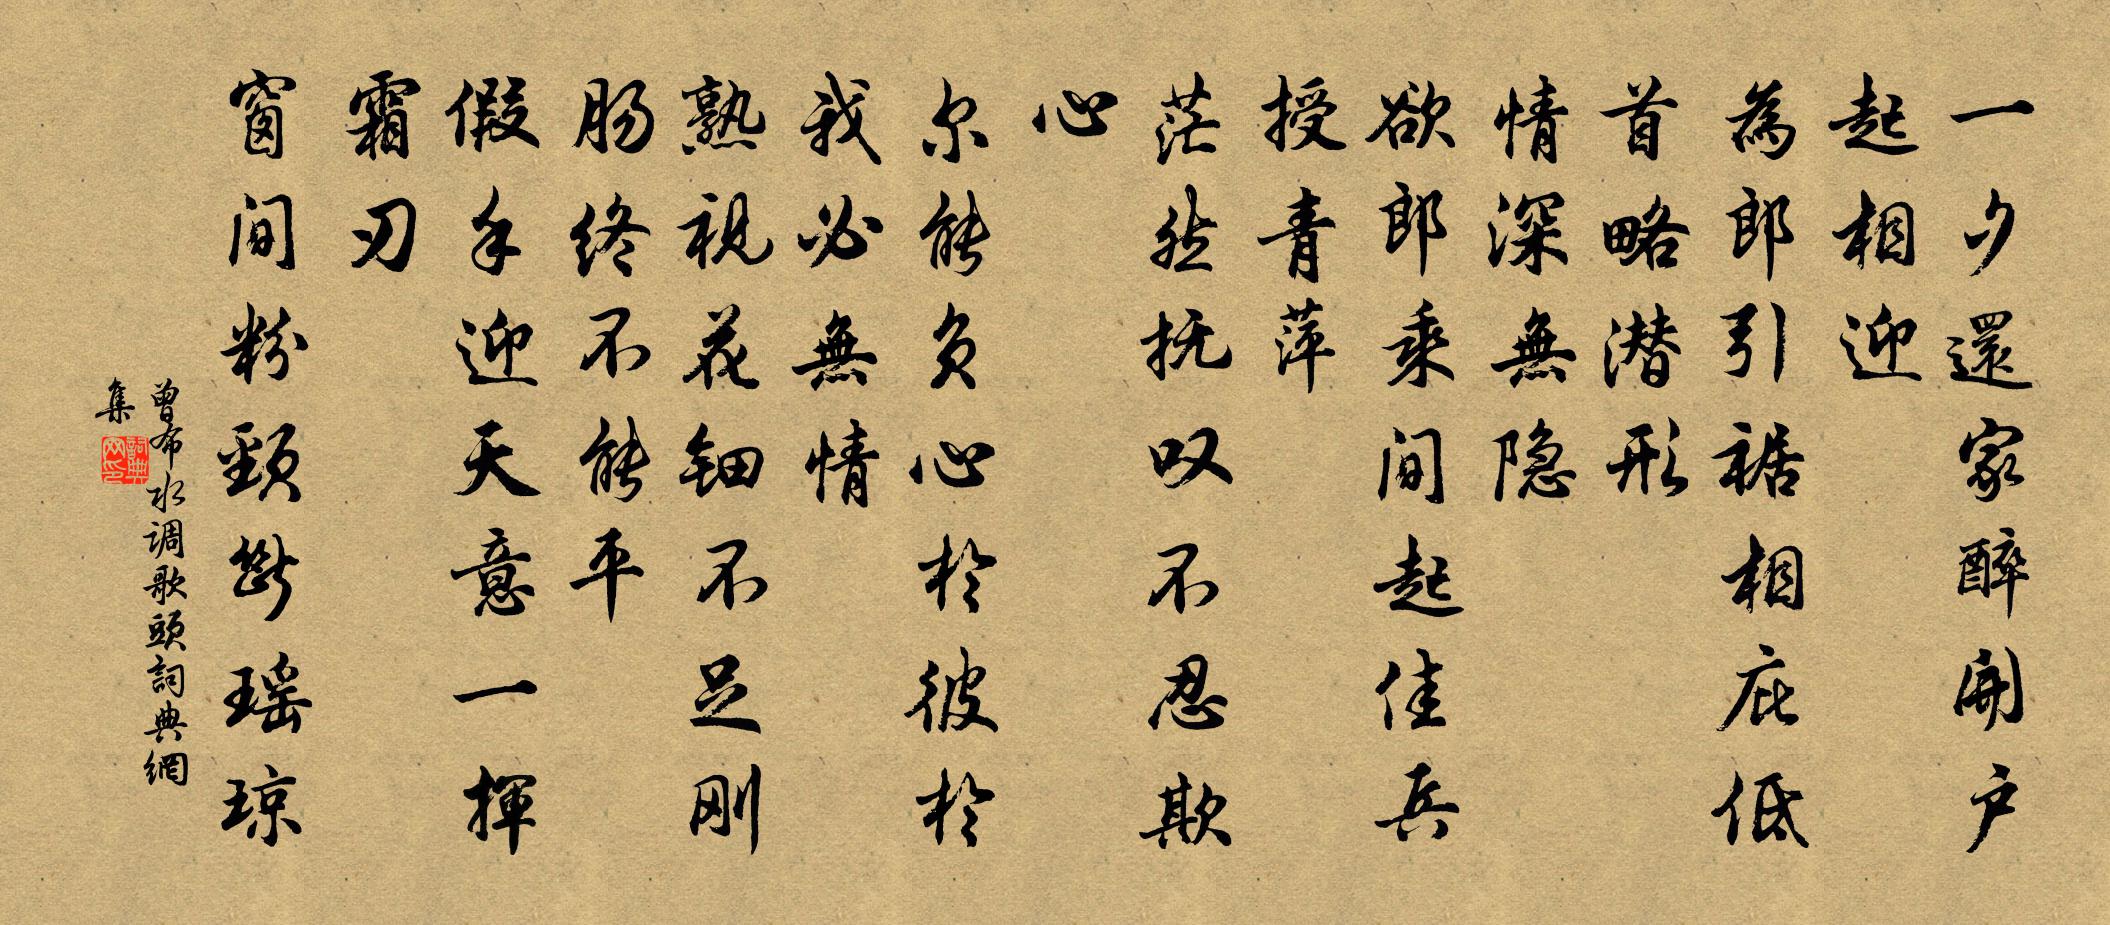 一夕還家醉開户
起相迎
為郎引裾相庇低
首略潜形
情深無隐
欲郎乘间起佳兵
授青萍
茫然抚叹不忍欺
心
尔能负心於彼於
我必無情
熟視花钿不足刚
肠终不能平
假手迎天意一揮
霜刃
窗间粉頸斷瑶琼
曾布水调歌頭詞典網
集
詞典网印